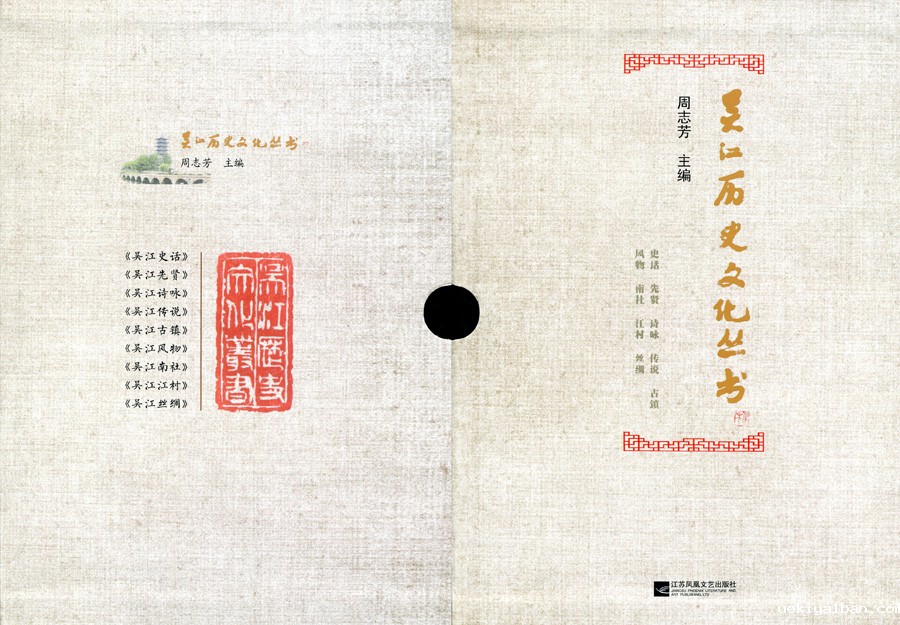 吴江历史文化丛书
周志芳 主编
《吴江史话》
《吴江先贤》
《吴江诗咏》
《吴江传说》
《吴江古镇》
《吴江风物》
《吴江南社》
《吴江江村》
《吴江丝绸》
吴江历史
文化丛书
吴江历史文化丛书
周志芳 主编
史话 先贤 诗咏 传说 古镇
风物 南社 江村 丝绸
江苏凤凰文艺出版社
JIANGSU PHOENIX LITERATURE AND
ART PUBLISHING, LTD